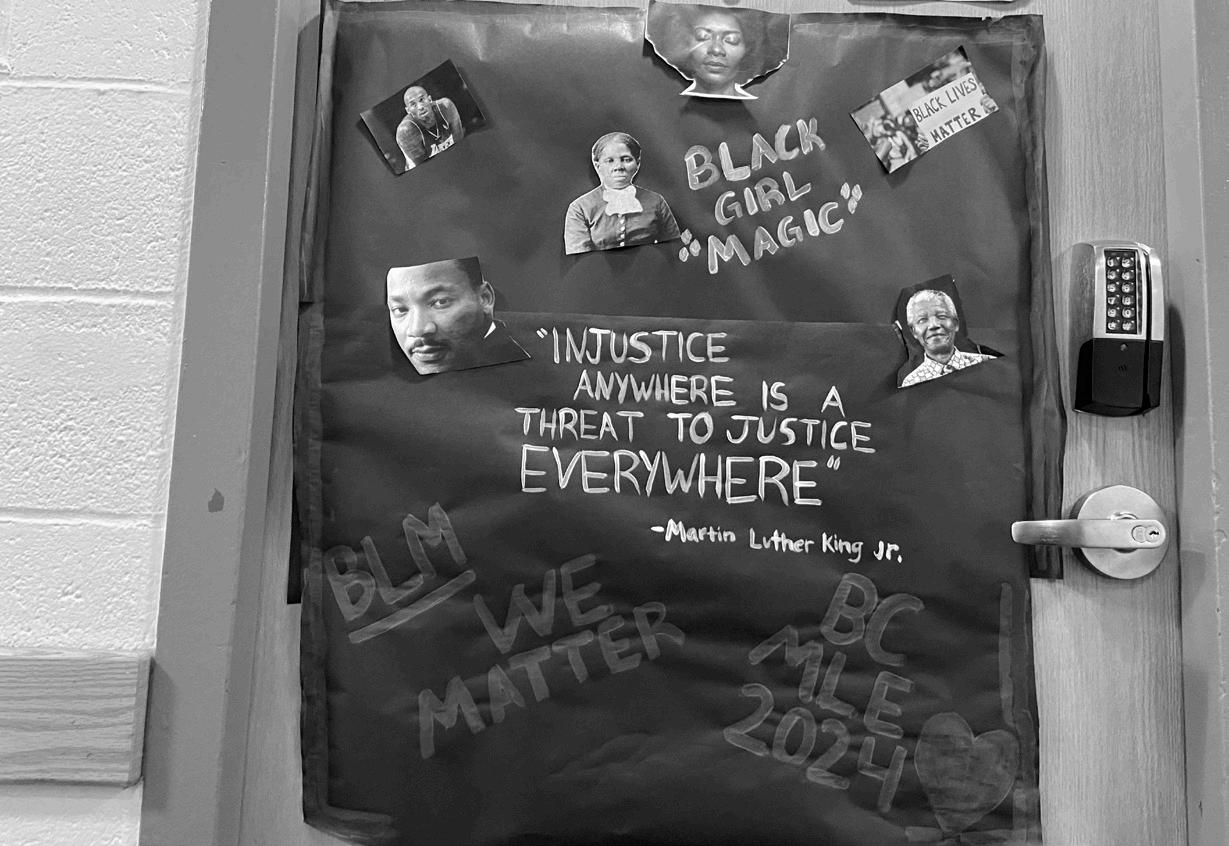 BLACK LIVES
MATTER
BLACK
GIRL
"MAGIC"
"INJUSTICE
ANYWHERE IS A
THREAT TO JUSTICE
EVERYWHERE"
-Martin Luther King Jr.
BLM
WE
MATTER
BC
MLE
2024